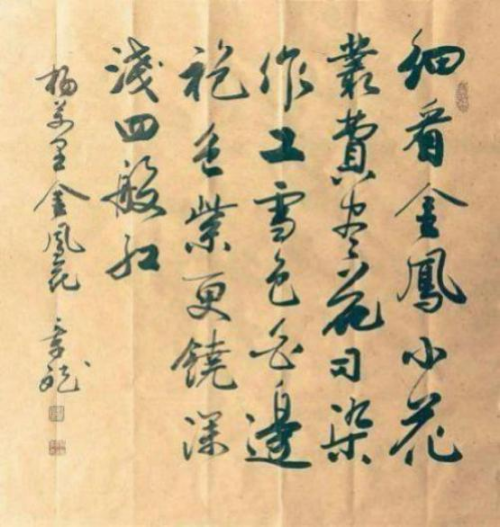 細看金鳳小花
叢費盡花司染
作工雪色白邊
袍色紫更饒深
淺四般紅
楊萬里金鳳花